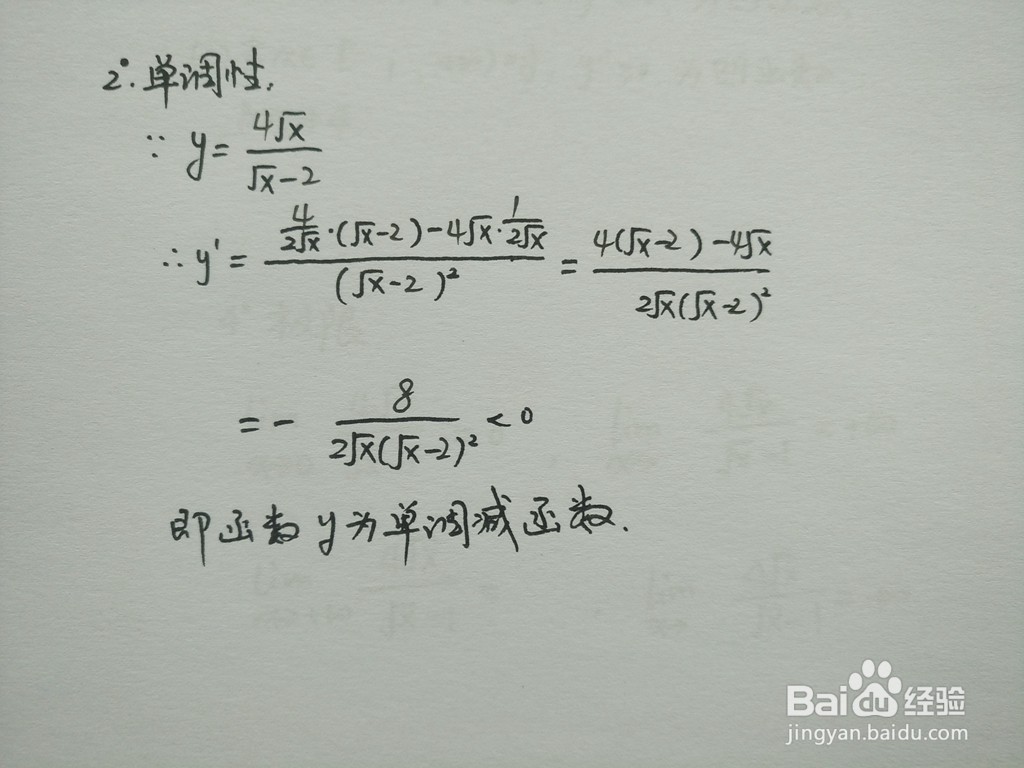 2°. 单调性,
∵ y = 4√x / (√x-2)
∴ y' = (4/(2√x)·(√x-2)-4√x·1/(2√x)) / (√x-2)² = (4(√x-2)-4√x) / (2√x(√x-2)²)
= - 8 / (2√x(√x-2)²) < 0
即函数y为单调减函数.
Bai du 经验
jingyan.baidu.com